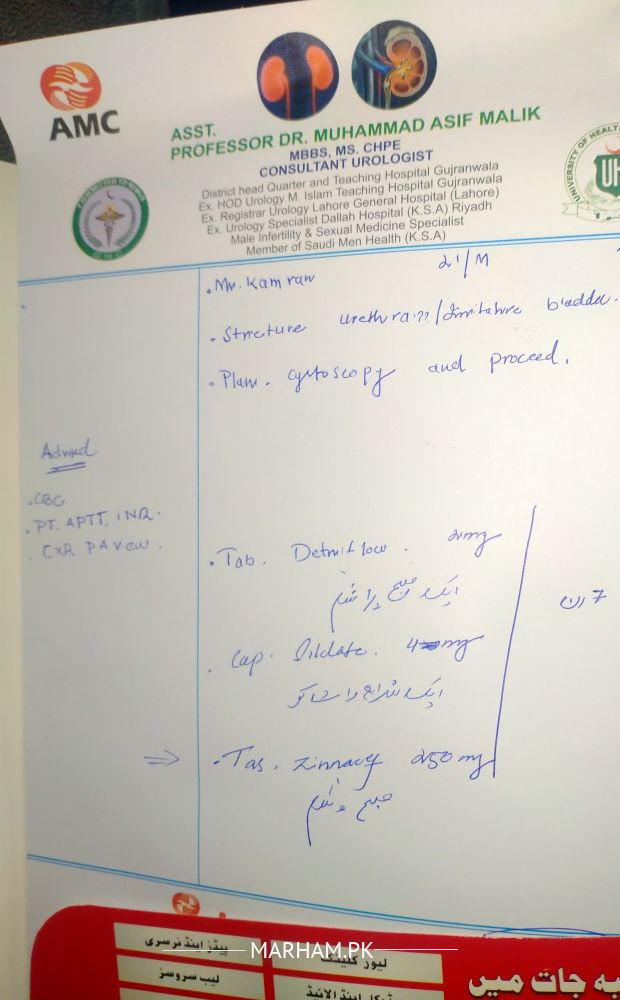 AMC
ASST.
PROFESSOR DR. MUHAMMAD ASIF MALIK
MBBS, MS. CHPE
CONSULTANT UROLOGIST
District head Quarter and Teaching Hospital Gujranwala
Ex. HOD Urology M. Islam Teaching Hospital Gujranwala
Ex. Registrar Urology Lahore General Hospital (Lahore)
Ex. Urology Specialist Dallah Hospital (K.S.A) Riyadh
Male Infertility & Sexual Medicine Specialist
Member of Saudi Men Health (K.S.A)
UNIVERSITY OF HEALT
UH
. Mr. Kamran 21/M
. Stricture urethra ?? / bladder.
. Plan. cystoscopy and proceed.
Advised
. CBC
. PT, APTT, INR.
. CXR PA view.
. Tab. 2mg
ایک صبح ایک شام
7 دن
. Cap. 4mg
ایک
⇒ . Tab. Zinnacef 250mg
صبح و شام
MARHAM.PK
پیڈز اینڈ نرسری
لیور کلینک
لیب سروسز
یہ جات میں